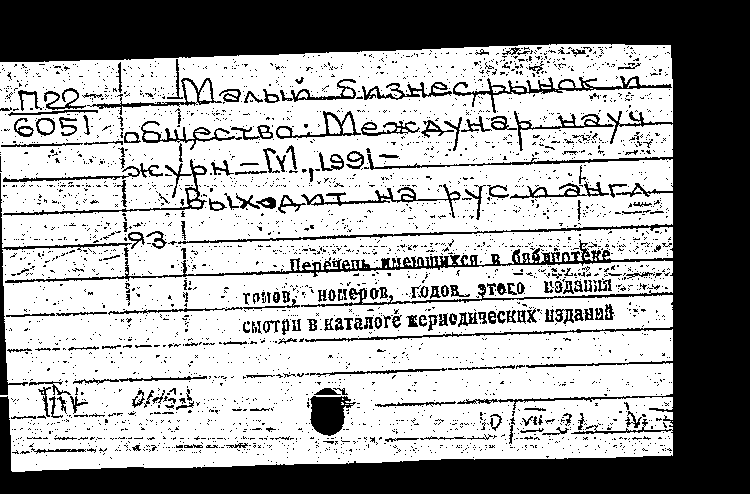 П22 Малый бизнес, рынок и
6051 общество: Междунар. науч.
журн. – М., 1991 –
Выходит на рус. и англ.
яз.
Перечень имеющихся в библиотеке
томов, номеров, годов этого издания
смотри в каталоге периодических изданий
10/VII-91